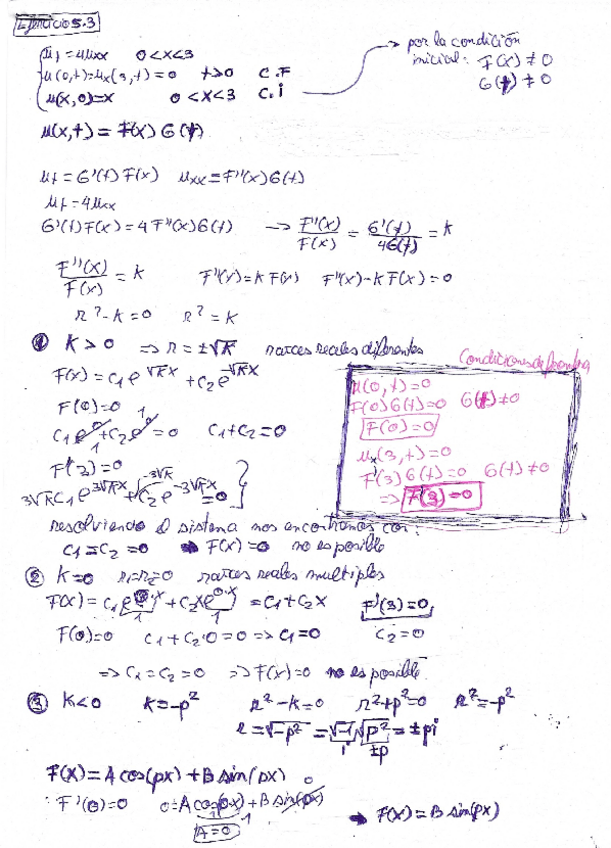 Ejercicio 5.3
u_t = 4u_xx 0<x<3
u(0,t)=u_x(3,t)=0 t>0 C.F
u(x,0)=x 0<x<3 C.i
→ por la condición
inicial: F(x)≠0
G(t)≠0
u(x,t) = F(x) G(t)
u_t = G'(t) F(x) u_xx = F''(x) G(t)
u_t = 4u_xx
G'(t) F(x) = 4 F''(x) G(t) → F''(x)/F(x) = G'(t)/4G(t) = k
F''(x)/F(x) = k F''(x) = k F(x) F''(x) - k F(x) = 0
r² - k = 0 r² = k
① k > 0 ⇒ r = ±√k raices reales diferentes
F(x) = c₁ e^{√k x} + c₂ e^{-√k x}
F(0)=0
c₁ e^0 + c₂ e^0 = 0 c₁ + c₂ = 0
1 1
F'(3)=0
3√k c₁ e^{3√k x} + (-3√k) c₂ e^{-3√k x} = 0
Condiciones de frontera
u(0,t)=0
F(0) G(t)=0 G(t)≠0
F(0)=0
u_x(3,t)=0
F'(3) G(t)=0 G(t)≠0
⇒ F'(3)=0
resolviendo el sistema nos encontramos con:
c₁ = c₂ = 0 → F(x)=0 no es posible
② k=0 r₁=r₂=0 raices reales multiples
F(x) = c₁ e^{0·x} + c₂ x e^{0·x} = c₁ + c₂ x F'(3)=0,
1 1
F(0)=0 c₁ + c₂·0 = 0 ⇒ c₁ = 0 c₂ = 0
⇒ c₁ = c₂ = 0 ⇒ F(x)=0 no es posible
③ k<0 k=-p² r²-k=0 r²+p²=0 r²=-p²
r = √-p² = √-1 √p² = ±pi
i ±p
F(x) = A cos(px) + B sin(px)
F'(0)=0 0 = A cos(px) + B sin(px) → F(x) = B sin(px)
1 0
A=0